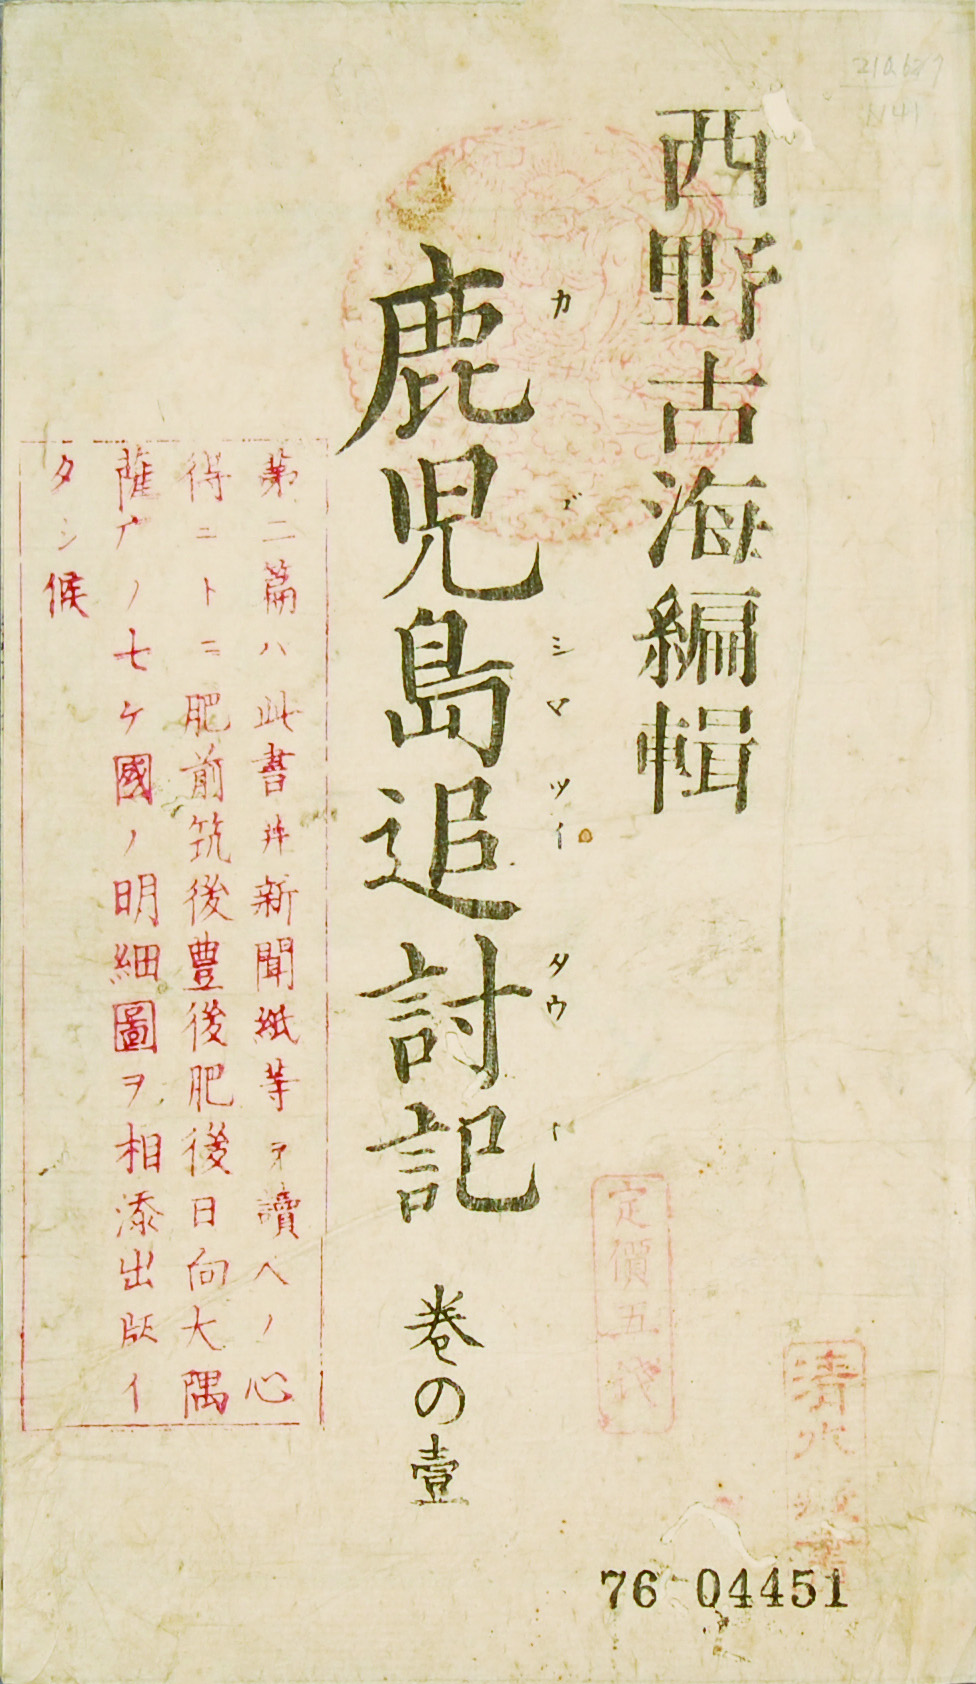 西野古海編輯
鹿児島追討記 巻の壹
カゴシマツイタウ
第二篇ハ此書并新聞紙等ヲ讀人ノ心
得ニトニ肥前筑後豊後肥後日向大隅
薩广ノ七ケ國ノ明細圖ヲ相添出版イ
タシ候
定價五錢
清水
76 04451